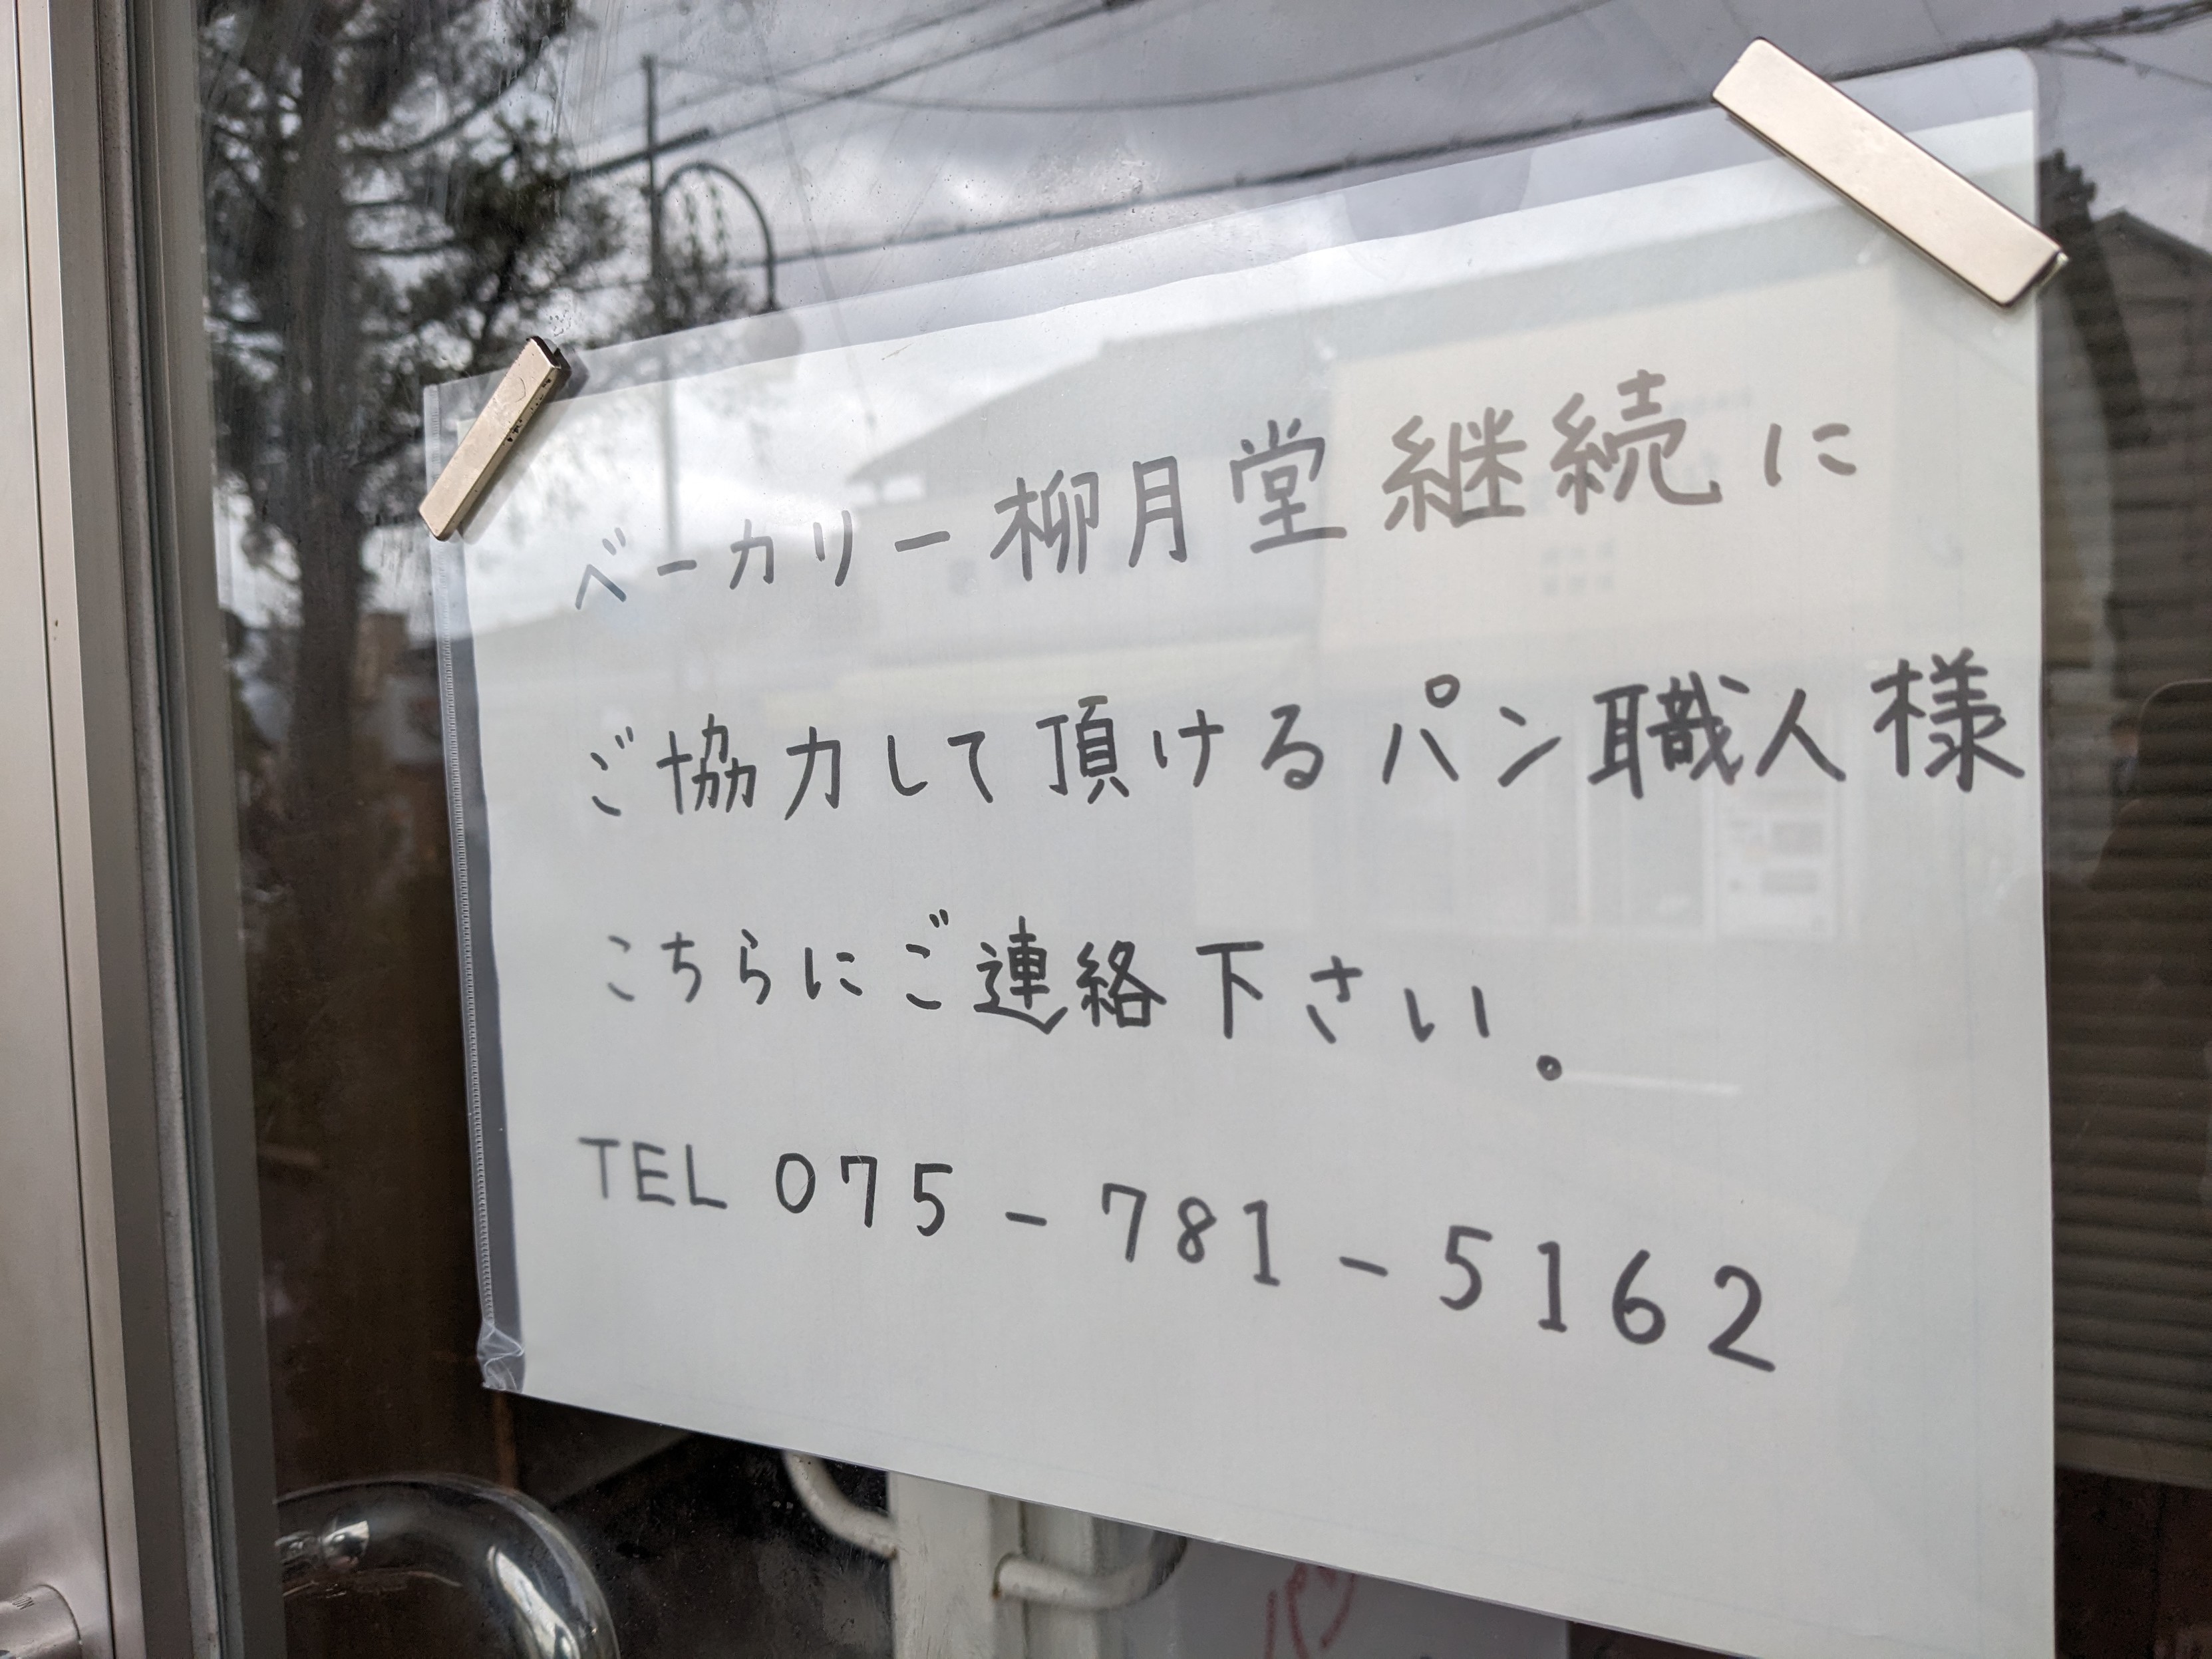 ベーカリー柳月堂継続に
ご協力して頂けるパン職人様
こちらにご連絡下さい。
TEL 075-781-5162